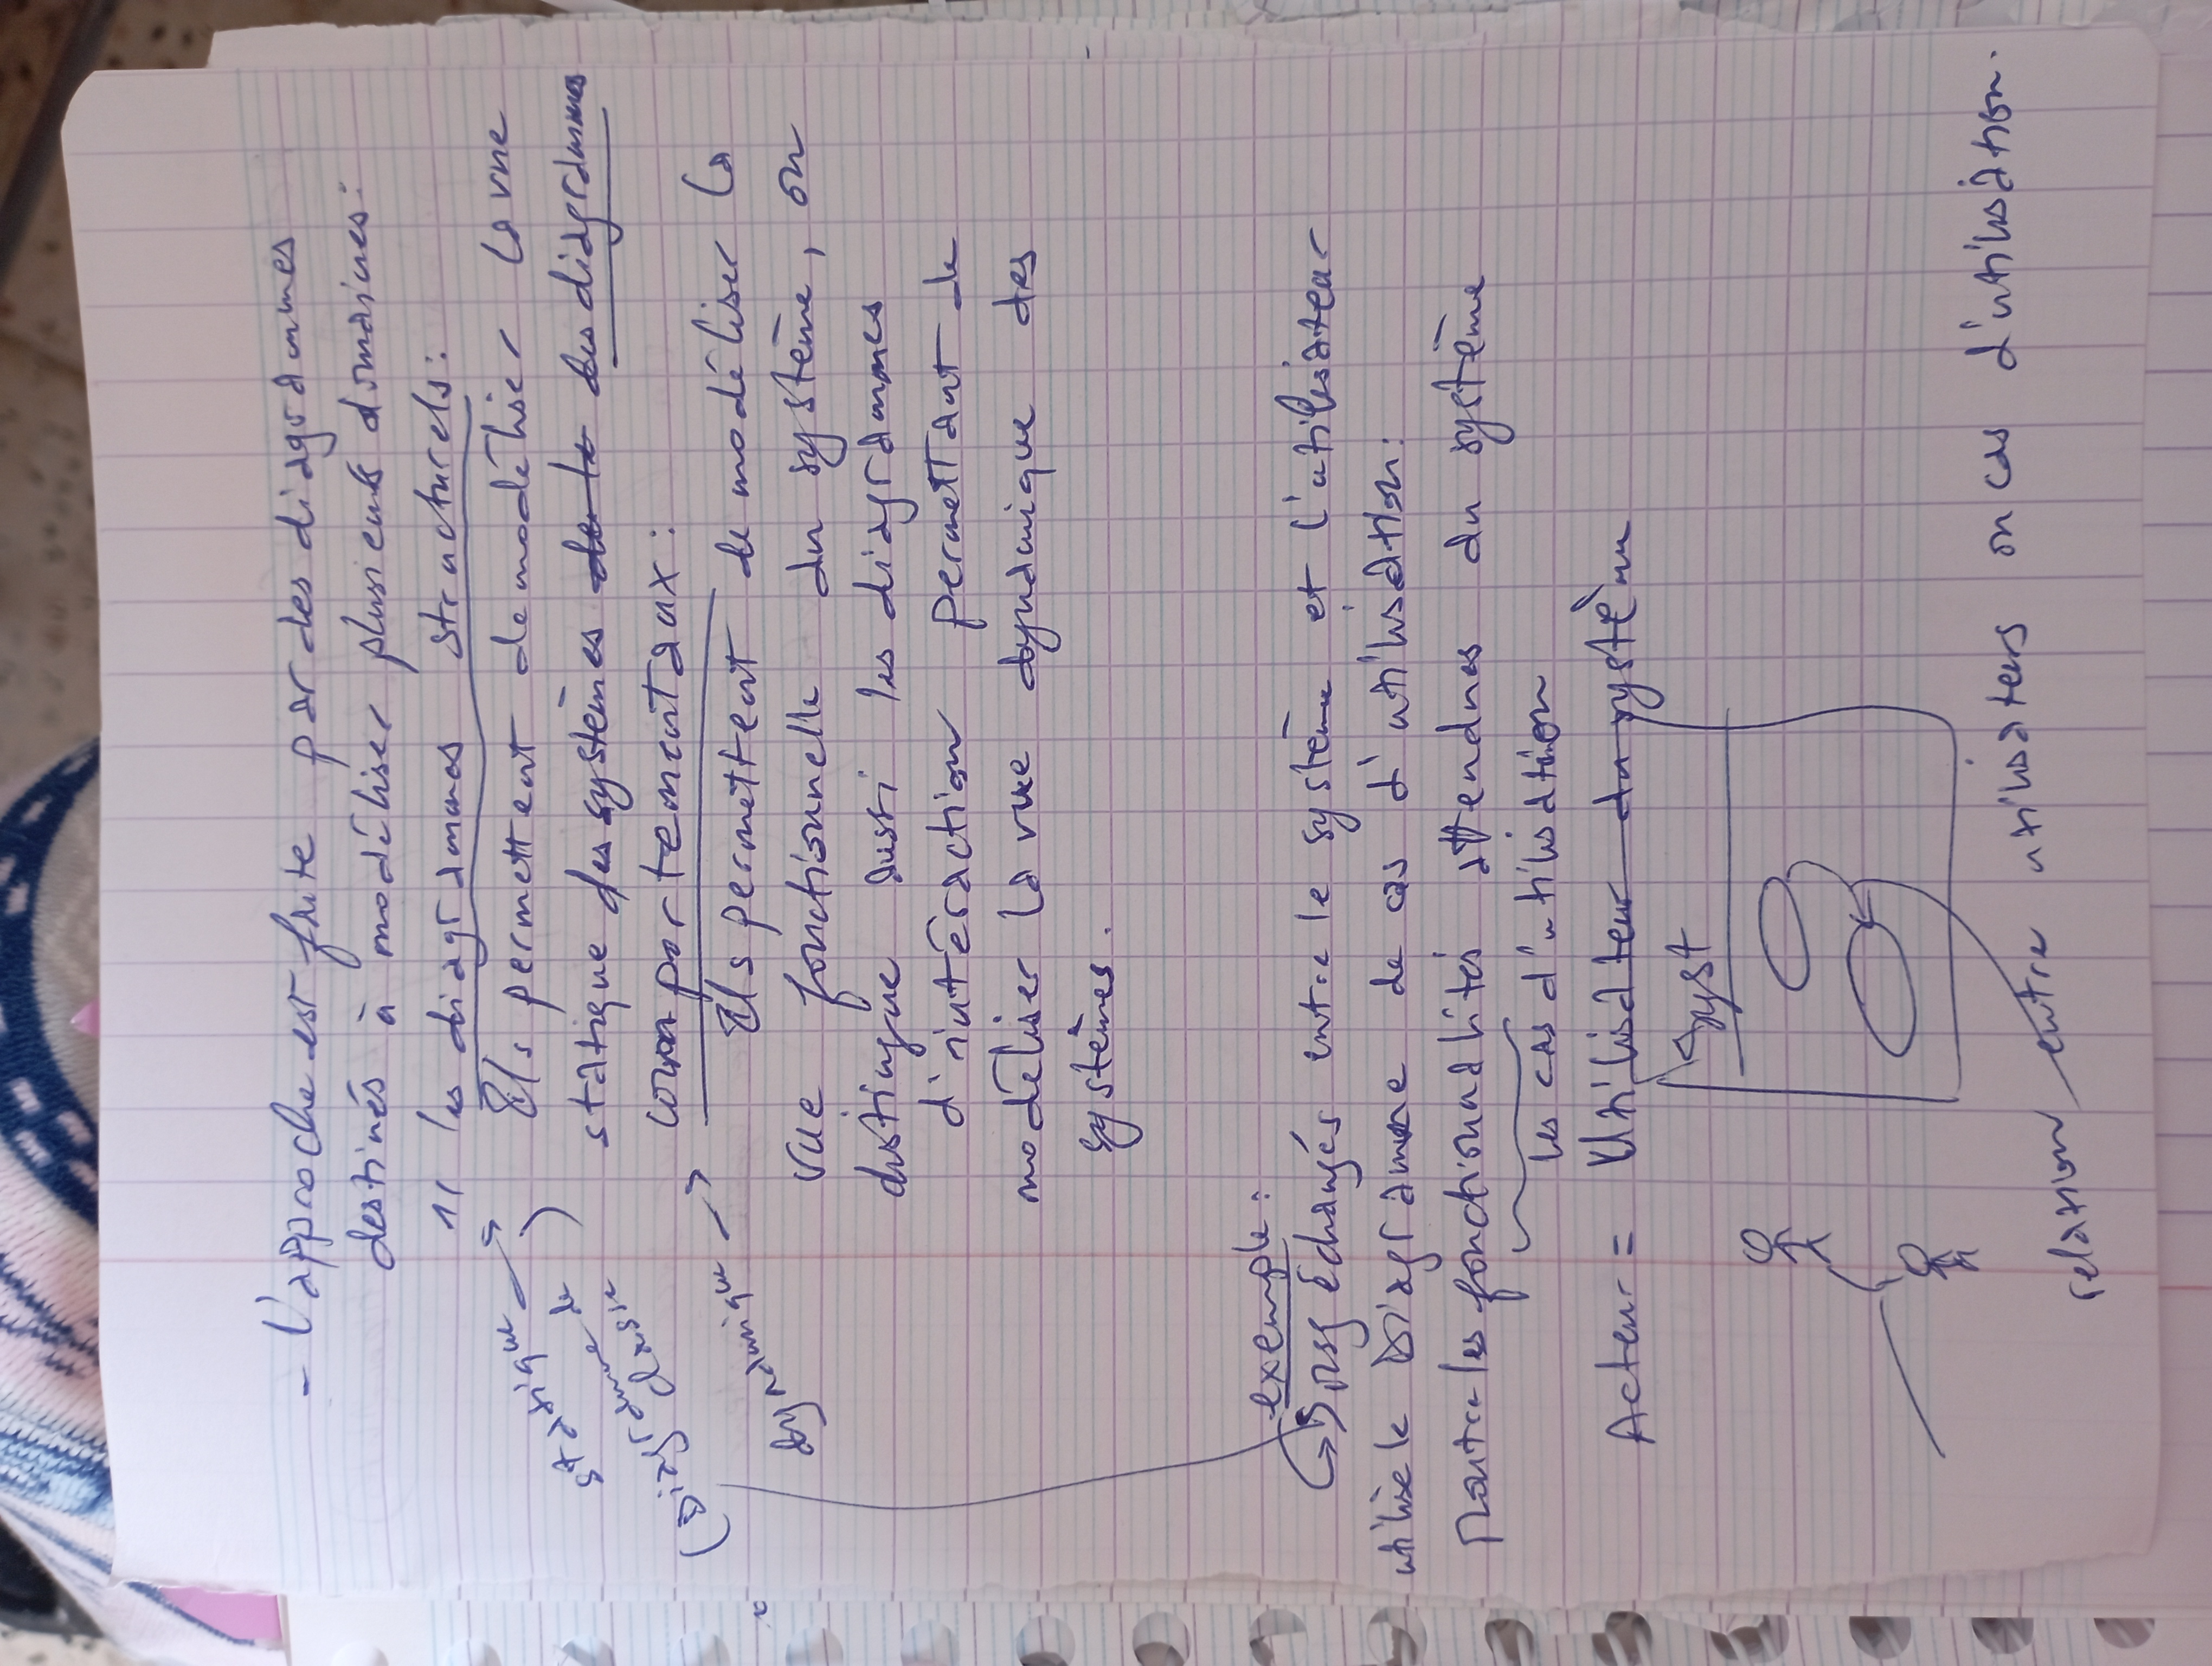 - L'approche est faite par des diagrammes
destinés à modéliser plusieurs domaines:
1/ les diagrammes structurels:
statique →
(Diagramme de
classe )
Ils permettent de modéliser la vue
statique des systèmes de le les diagrammes
comportementaux:
dynamique →
Ils permettent de modéliser la
vue fonctionnelle du système, on
distingue aussi les diagrammes
d'intéraction permettant de
modéliser la vue dynamique des
systèmes.
exemple:
msg échangés entre le système et l'utilisateur
utilise le Diagramme de cas d'utilisation:
Montre les fonctionnalités attendues du système
les cas d'utilisation
Acteur = Utilisateur du système
Syst
relation entre utilisateurs ou cas d'utilisation.